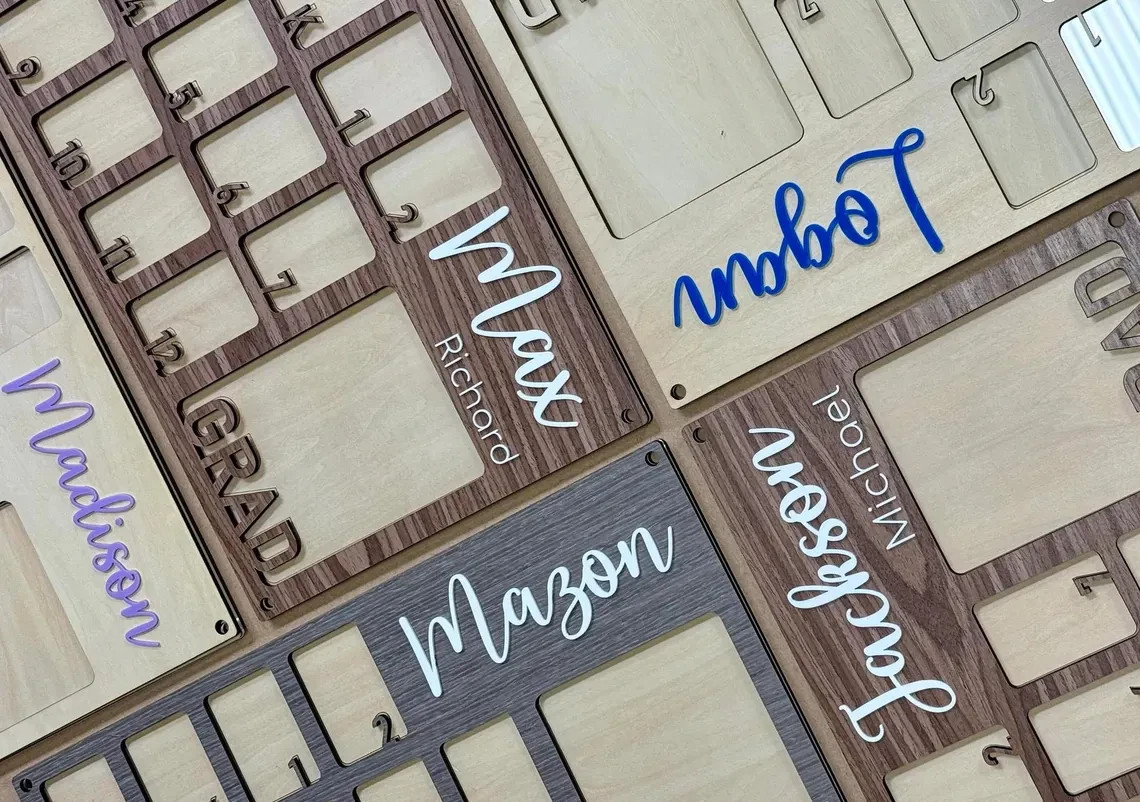 Madison
9
10
11
12
4
5
6
7
K
1
2
GRAD
Max
Richard
Logan
2
1
Mazon
1
2
Jackson
Michael
1
2